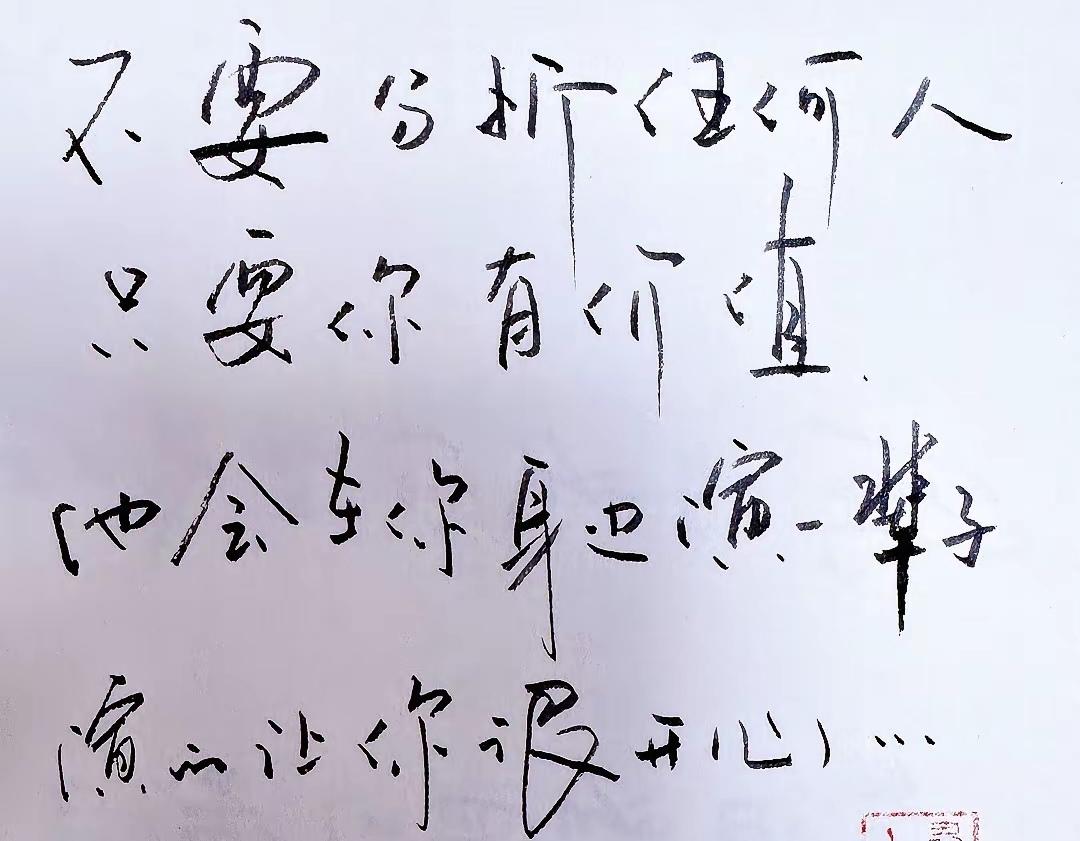 不要分析任何人
只要你有价值
他会在你身边演一辈子
演的让你很开心,…